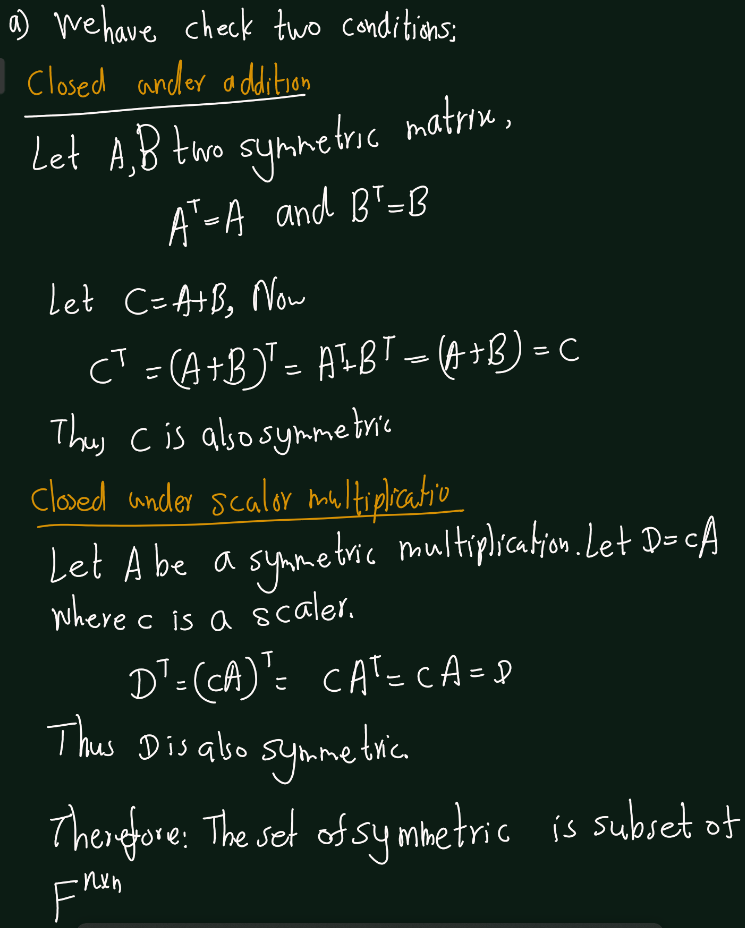 a) We have check two conditions:
Closed under addition
Let A,B two symmetric matrix,
Aᵀ=A and Bᵀ=B
Let C=A+B, Now
Cᵀ =(A+B)ᵀ= Aᵀ+Bᵀ = (A+B) = C
Thus C is also symmetric
Closed under scalar multiplicatio
Let A be a symmetric multiplication. Let D=cA
Where c is a scaler.
Dᵀ=(cA)ᵀ= cAᵀ= cA = D
Thus D is also symmetric.
Therefore: The set of symmetric is subset of
Fⁿˣⁿ